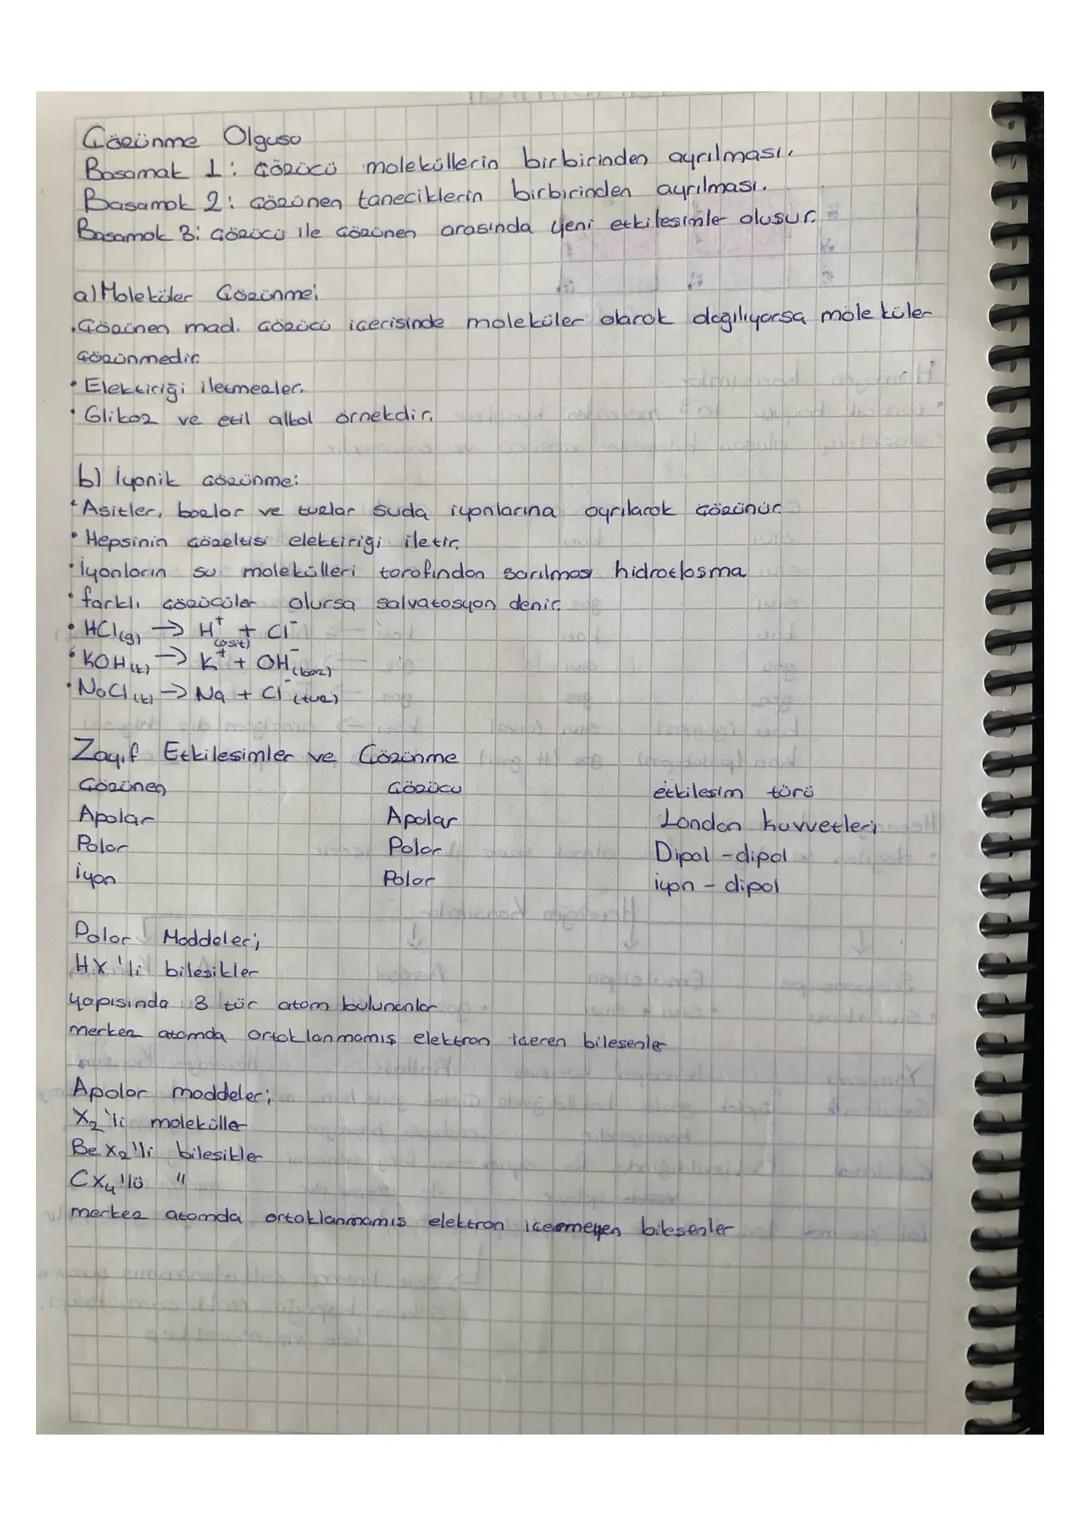 Çözünme Olgusu
Basamak 1: Çözücü moleküllerin birbirinden ayrılması.
Basamak 2: Çözünen taneciklerin birbirinden ayrılması.
Basamak 3: Çözücü ile Çözünen arasında yeni etkilesimler olusur.
a) Moleküler Çözünme;
.Çözünen mad. Çözücü içerisinde moleküler olarak dağılıyorsa moleküler
Çözünmedir.
• Elektiriği iletmezler.
• Glikoz ve etil alkol örnekdir.
b) İyonik Çözünme:
• Asitler, bazlar ve tuzlar suda iyonlarına ayrılarak çözünür.
• Hepsinin çözeltisi elektiriği iletir.
• İyonların su molekülleri tarafından sarılması hidrotlasma
• farklı çözücüler olursa salvatasyon denir.
• HCl(g) → H⁺ + Cl⁻ (asit)
• KOH(k) → K⁺ + OH⁻ (baz)
• NaCl(k) → Na + Cl⁻ (tuz)
Zayıf Etkilesimler ve Çözünme
Çözünen Çözücü etkilesim türü
Apolar Apolar London kuvvetleri
Polar Polar Dipol - dipol
iyon Polar iyon - dipol
Polar Maddeler;
HX'li bilesikler
yapısında 3 tür atom bulunanlar
merkez atomda ortaklanmamış elektron içeren bilesenler
Apolar maddeler;
X₂'li moleküller
BeX₂'li bilesikler
CX₄'lü "
merkez atomda ortaklanmamıs elektron içermeyen bilesenler